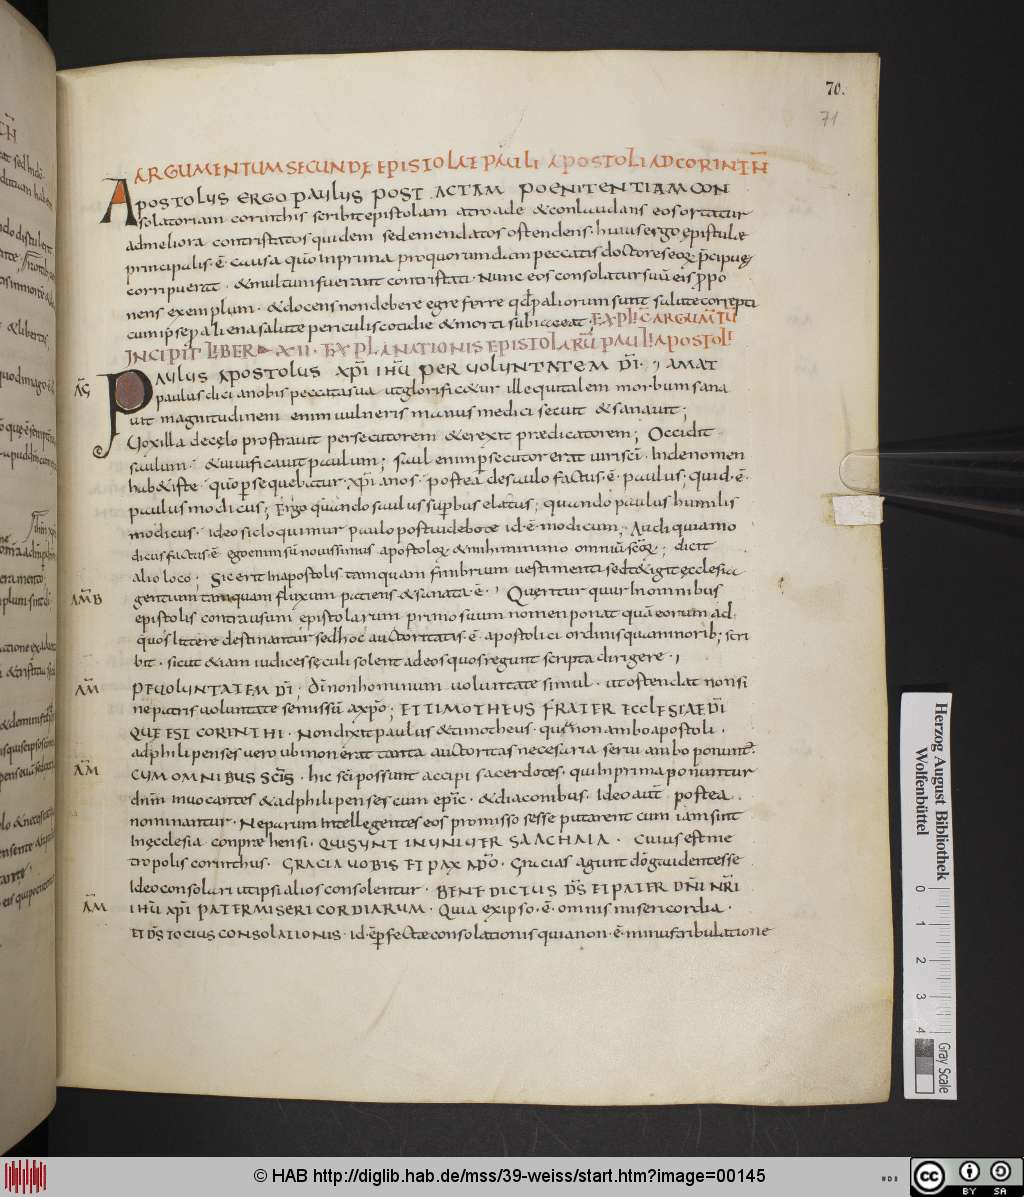 70.
71
ARGUMENTUM SECUNDE EPISTOLAE PAULI APOSTOLI AD CORINTH̄
APOSTOLUS ERGO PAULUS POST ACTAM POENITENTIAM CON
solatoriam corinthiis scribit epistolam a troade & conlaudans eos ortatur
ad meliora contristatos quidem sed emendatos ostendens. huius ergo epistulae
principalis .ē. causa quō in prima pro quorundam peccatis doctores eoꝝ p̄cipue
corripuerat. & multum fuerant contristati. Nunc eos consolatur suū eis p̄po
nens exemplum. & docens non debere egre ferre qđ p aliorum sunt salute correpti
cum ipse p aliena salute periculis cotidie & morti subiaceat; EXPLIC ARGUM̄TU
INCIPIT LIBER XII. EXPLANATIONIS EPISTOLARŪ PAULI APOSTOLI
AḠ
PAULUS APOSTOLUS XP̄I IHŪ PER UOLUNTATEM DI̅. AMAT
paulus dici a nobis peccata sua ut glorificetur ille qui talem morbum sana
uit magnitudinem enim uulneris manus medici secuit & sanauit;
Uox illa de cęlo prostrauit persecutorem & erexit prædicatorem; Occidit
saulum. & uiuificauit paulum; saul enim p̄secutor erat uiri sc̄i. Inde nomen
hab& iste. quō p̄sequebatur xp̄ianos. postea de saulo factus .ē. paulus; quid .ē.
paulus modicus; Ergo quando saulus sup̄bus elatus; quando paulus humilis
modicus. ideo sic loquimur paulo post uidebo te id .ē. modicum; Audi quia mo
dicus factus .ē. ego enim sū nouissimus apostoloꝝ. & mihi minimo omniū sc̄oꝝ; dicit
alio loco; Sic erit in apostolis tamquam fimbrium uestimenti sed tetigit ęcclesia
AM̄B
gentium tamquam fluxum patiens & sanata .ē. Queritur quur in omnibus
epistolis contra usum epistolarum primo suum nomen ponat quā eorum ad
quos littere destinantur sed hoc auctoritatis .ē. apostolici ordinis quam morib; scri
bit. sicut & iam iudices sęculi solent ad eos quos regunt scripta dirigere.
AM̄
PE UOLUNTATEM DI̅; Dī non hominum uoluntate simul. ut ostendat non si
ne patris uoluntate se missū a xp̄o; ET TIMOTHEUS FRATER ECCLESIAE DI̅
QUE EST CORINTHI. Non dixit paulus & timotheus. quia non ambo apostoli.
ad philipenses uero ubi non erat tanta auctoritas necesaria serui ambo ponunt̄.
AM̄
CUM OMNIBUS SC̄IS. hic sc̄i possunt accipi sacerdotes. qui in prima ponuntur
dnm̄ inuocantes & ad philipenses cum epīc. & diaconibus. Ideo aut̄ postea
nominantur. Ne parum intellegentes eos promisso sesse putarent cum iam sint
In ęcclesia conprehensi. QUI SUNT IN UNIUERSA ACHAIA. Cuius est me
tropolis corinthus. GRACIA UOBIS ET PAX A DO̅. Gracias agunt dō̄ uidentes se
Ideo consolari ut ipsi alios consolentur. BENEDICTUS DS̄ ET PATER DN̄I NR̄I
AM̄
IHŪ XP̄I PATER MISERICORDIARUM. Quia ex ipso .ē. omnis misericordia.
ET DS̄ TOCIUS CONSOLATIONIS. id .ē. p̄fectæ consolationis quia non .ē. minus tribulatione
Herzog August Bibliothek
Wolfenbüttel
0 1 2 3 4
Gray Scale
© HAB http://diglib.hab.de/mss/39-weiss/start.htm?image=00145
cc BY SA